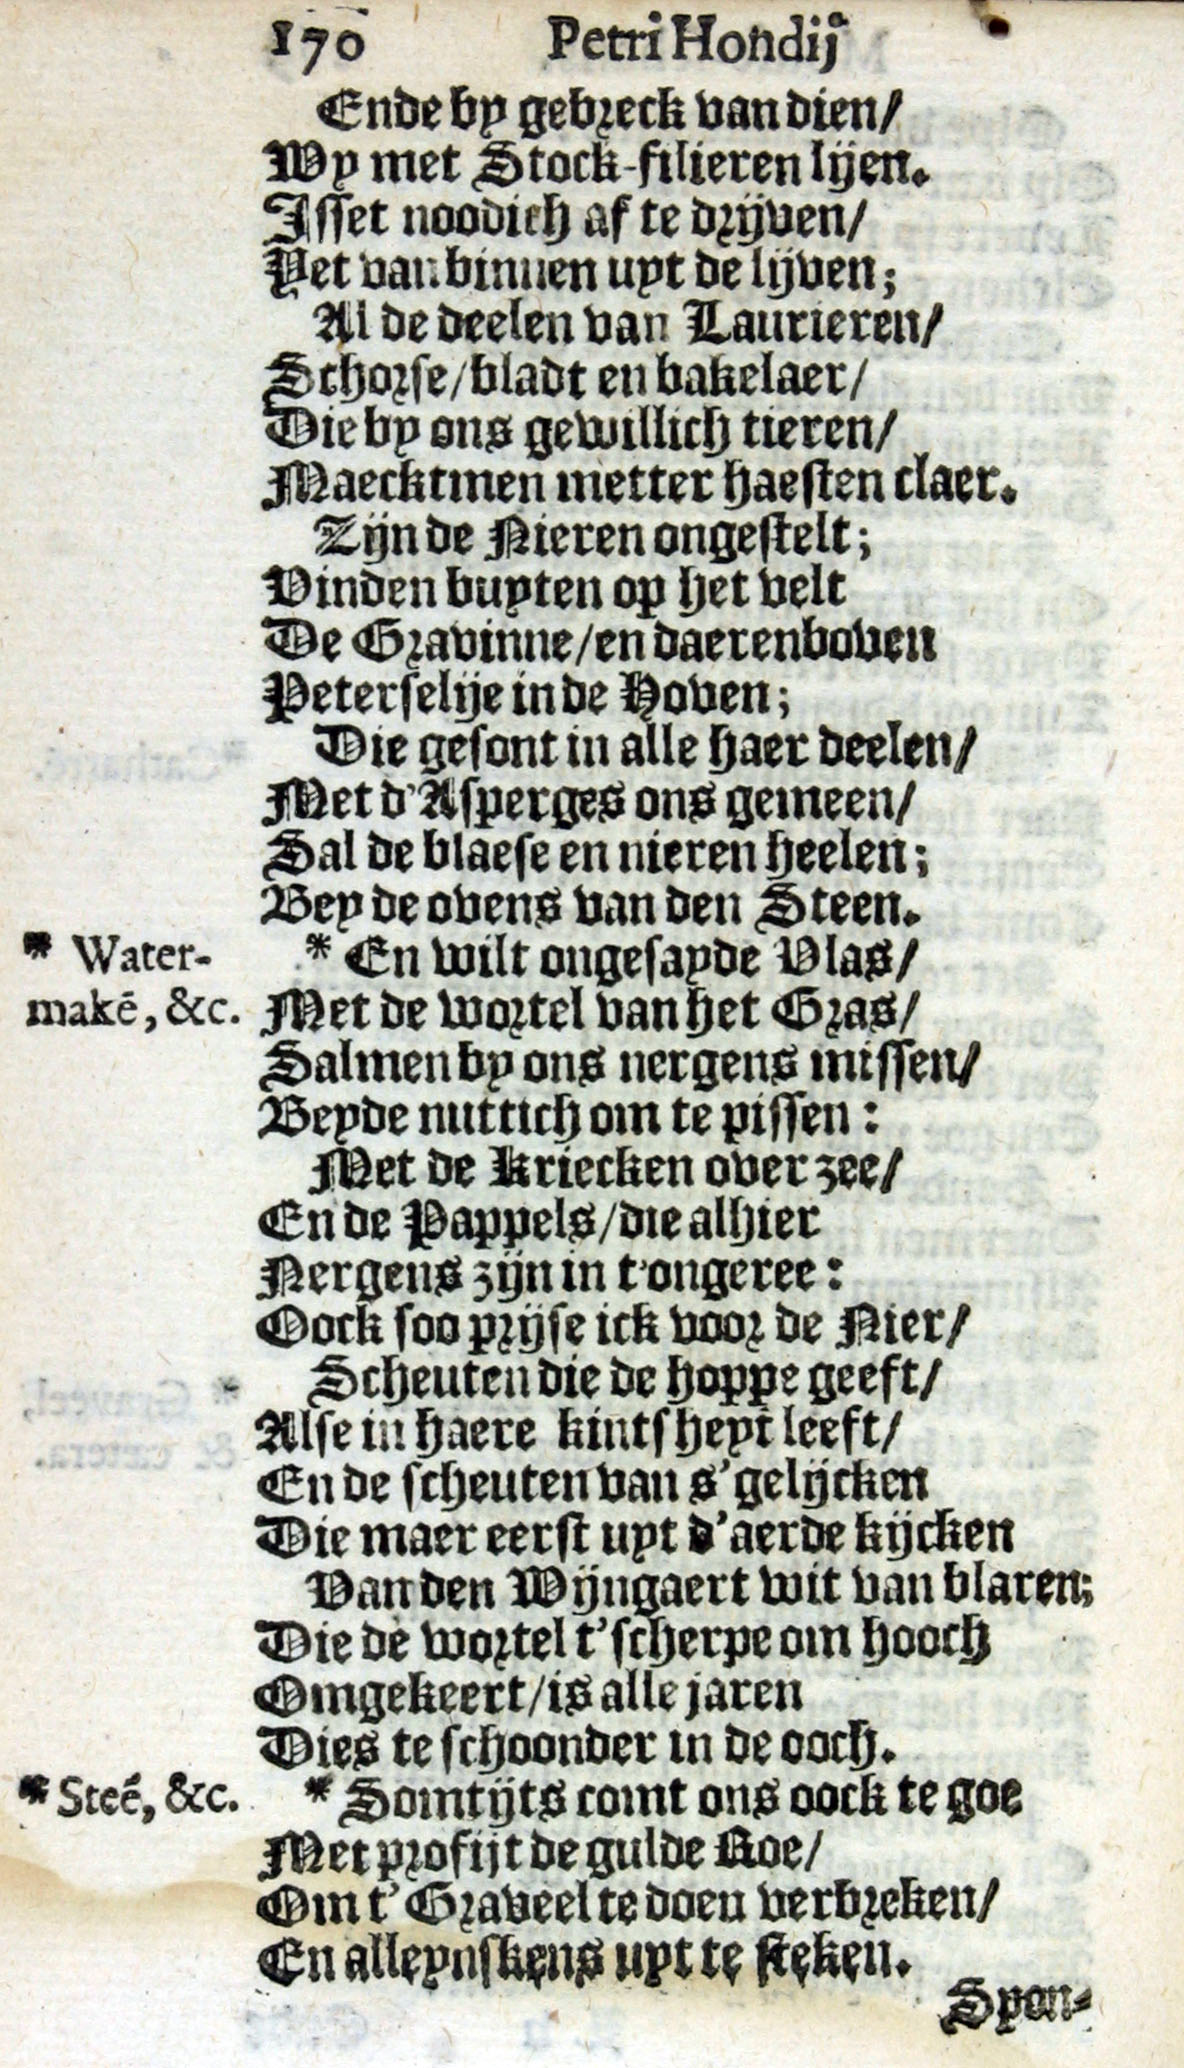 170 Petri Hondij
Ende by gebreck van dien/
Wy met Stock-filieren lijen.
Isset noodich af te drijven/
Yet van binnen uyt de lijven;
Al de deelen van Laurieren/
Schorse/bladt en bakelaer/
Die by ons gewillich tieren/
Maecktmen metter haesten claer.
Zijn de Nieren ongestelt;
Vinden buyten op het velt
De Gravinne/en daerenboven
Peterselije in de Hoven;
Die gesont in alle haer deelen/
Met d'Asperges ons gemeen/
Sal de blaese en nieren heelen;
Bey de ovens van den Steen.
* Water-
maké, &c.
* En wilt ongesayde Vlas/
Met de wortel van het Gras/
Salmen by ons nergens missen/
Beyde nuttich om te pissen:
Met de Kriecken over zee/
En de Pappels/die alhier
Nergens zijn in t'ongeree:
Oock soo prijse ick voor de Nier/
Scheuten die de hoppe geeft/
Alse in haere kintsheyt leeft/
En de scheuten van s'gelijcken
Die maer eerst uyt d'aerde kijcken
Van den Wijngaert wit van blaren;
Die de wortel t'scherpe om hooch
Omgekeert/is alle jaren
Dies te schoonder in de ooch.
* Steé, &c.
* Somtijts comt ons oock te goe
Met profijt de gulde Roe/
Om t'Graveel te doen verbreken/
En alleynskens uyt te steken.
Spon-